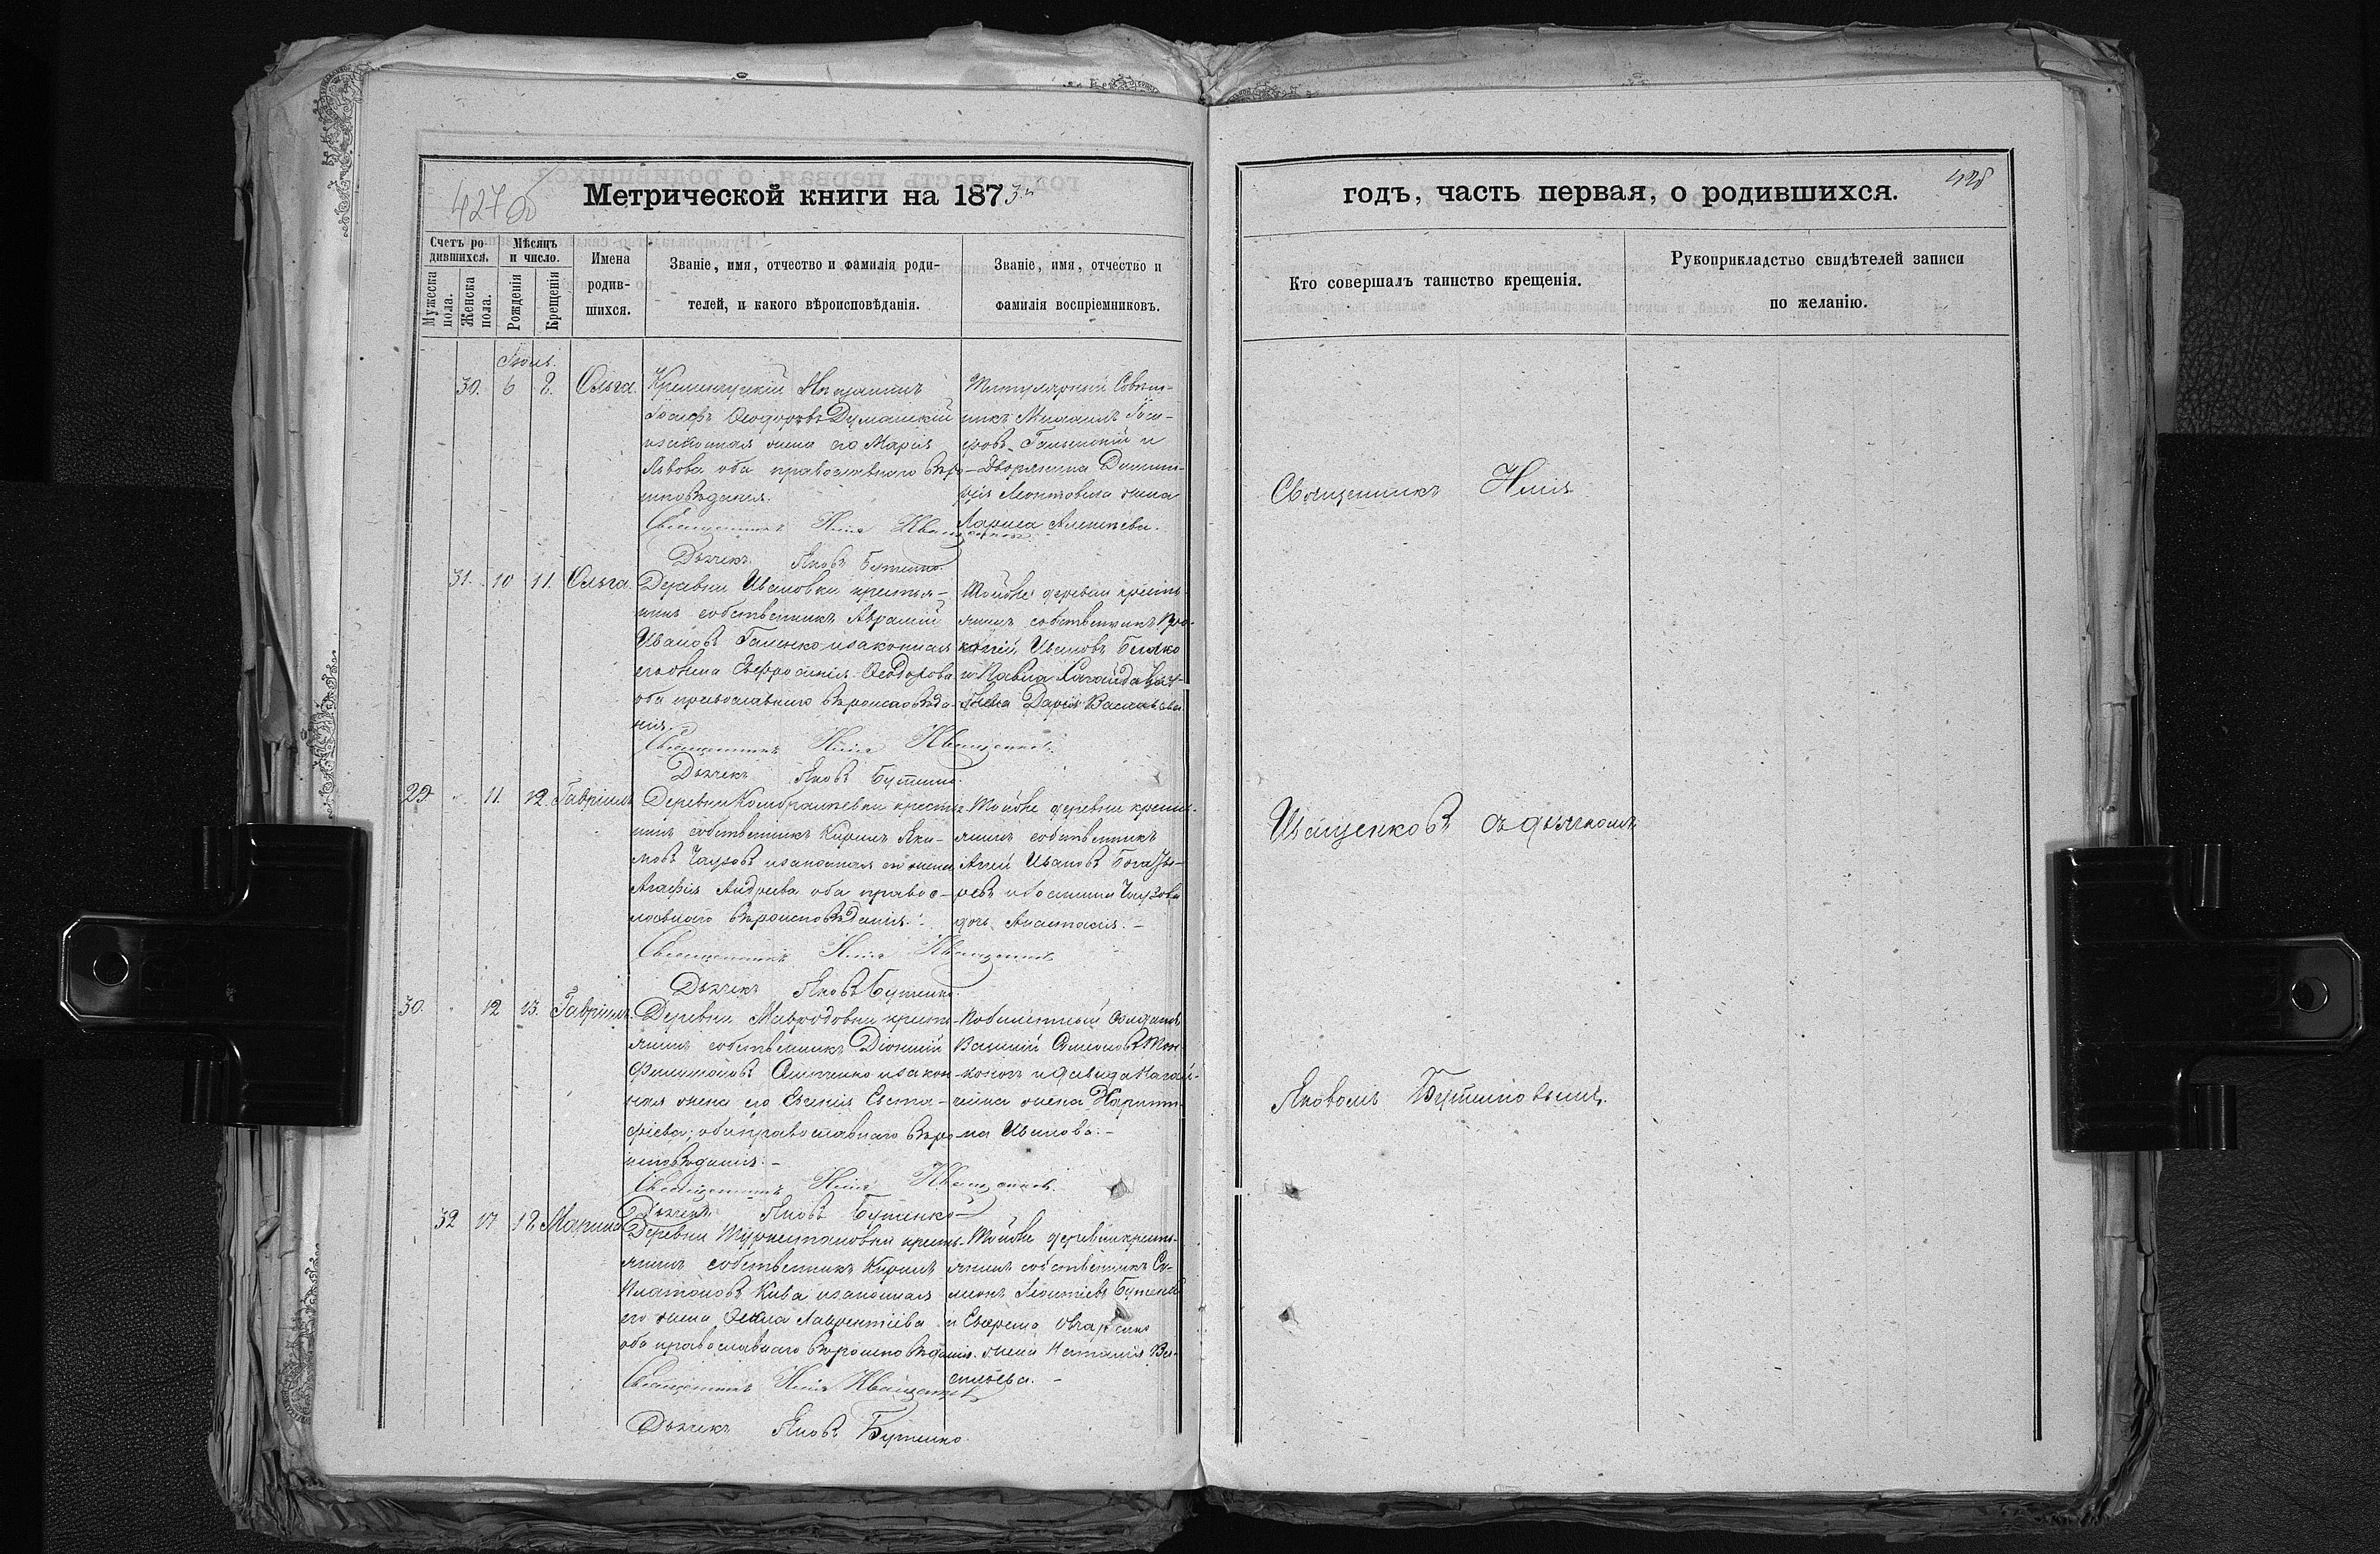 427 об
Метрической книги на 1873й
Счетъ ро-
дившихся.
Мужеска пола.
Женска пола.
Мѣсяцъ
и число.
Рожденія
Крещенія
Имена
родив-
шихся.
Званіе, имя, отчество и фамилія роди-
телей, и какого вѣроисповѣданія.
Званіе, имя, отчество и
фамилія воспріемниковъ.
Іюль.
30. 6 8. Ольга.
Іосифъ Ѳеодоровъ Думанскій
и законная жена его Марія
Львова оба православнаго Вѣро-
исповѣданія.
Священникъ Илія Иващенковъ
Дьячекъ Яковъ Бутенко.
Титулярный Совѣт-
никъ Михаилъ Іоси-
фовъ и
Дворянина Димит-
рія жена
Лариса Алексѣева.
31. 10 11. Ольга.
Деревни Ивановки крестья-
нинъ собственникъ Аврамій
Ивановъ Галенко и законная
его жена Евфросинія Ѳеодорова
оба православнаго Вѣроисповѣда-
нія.
Священникъ Илія Иващенковъ.
Дьячекъ Яковъ Бутенко.
Тойже деревни кресть-
янинъ собственникъ Про-
копій Ивановъ
и Павла
жена Дарія Васильева
29 " 11. 12. Гавріилъ
Деревни крестья-
нинъ собственникъ Кирилъ Яки-
мовъ Чаузовъ и законная его жена
Агафія Андреева оба правос-
лавнаго Вѣроисповѣданія.
Священникъ Илія Иващенковъ
Дьячекъ Яковъ Бутенко.
Тойже деревни кресть-
янинъ собственникъ
Ивановъ
Чаузова
дочь Анастасія. -
30. " 12 13. Гавріилъ.
Деревни Мавродовки кресть-
янинъ собственникъ Діонисій
Филимоновъ и закон-
ная жена его Евгенія Евста-
фіева; оба православнаго Вѣро-
исповѣданія. -
Священникъ Илія Иващенковъ.
Дьячекъ Яковъ Бутенко
солдатъ
Василій Симеоновъ
и Давида
жена Харити-
на Иванова. -
32 17 18 Марина
Деревни кресть-
янинъ собственникъ Кирилъ
Платоновъ Кива и законная
его жена Ѳекла Лаврентіева
оба православнаго Вѣроисповѣданія.
Священникъ Илія Иващенковъ
Дьячекъ Яковъ Бутенко.
Тойже деревни кресть-
янинъ собственникъ Си-
меонъ Леонтіевъ Бутенко
и
жена Наталія Ва-
сильева. -
428
годъ, часть первая, о родившихся.
Кто совершалъ таинство крещенія.
Рукоприкладство свидѣтелей записи
по желанію.
Священникъ Илія
Иващенковъ съ дьячкомъ
Яковомъ Бутенковымъ.